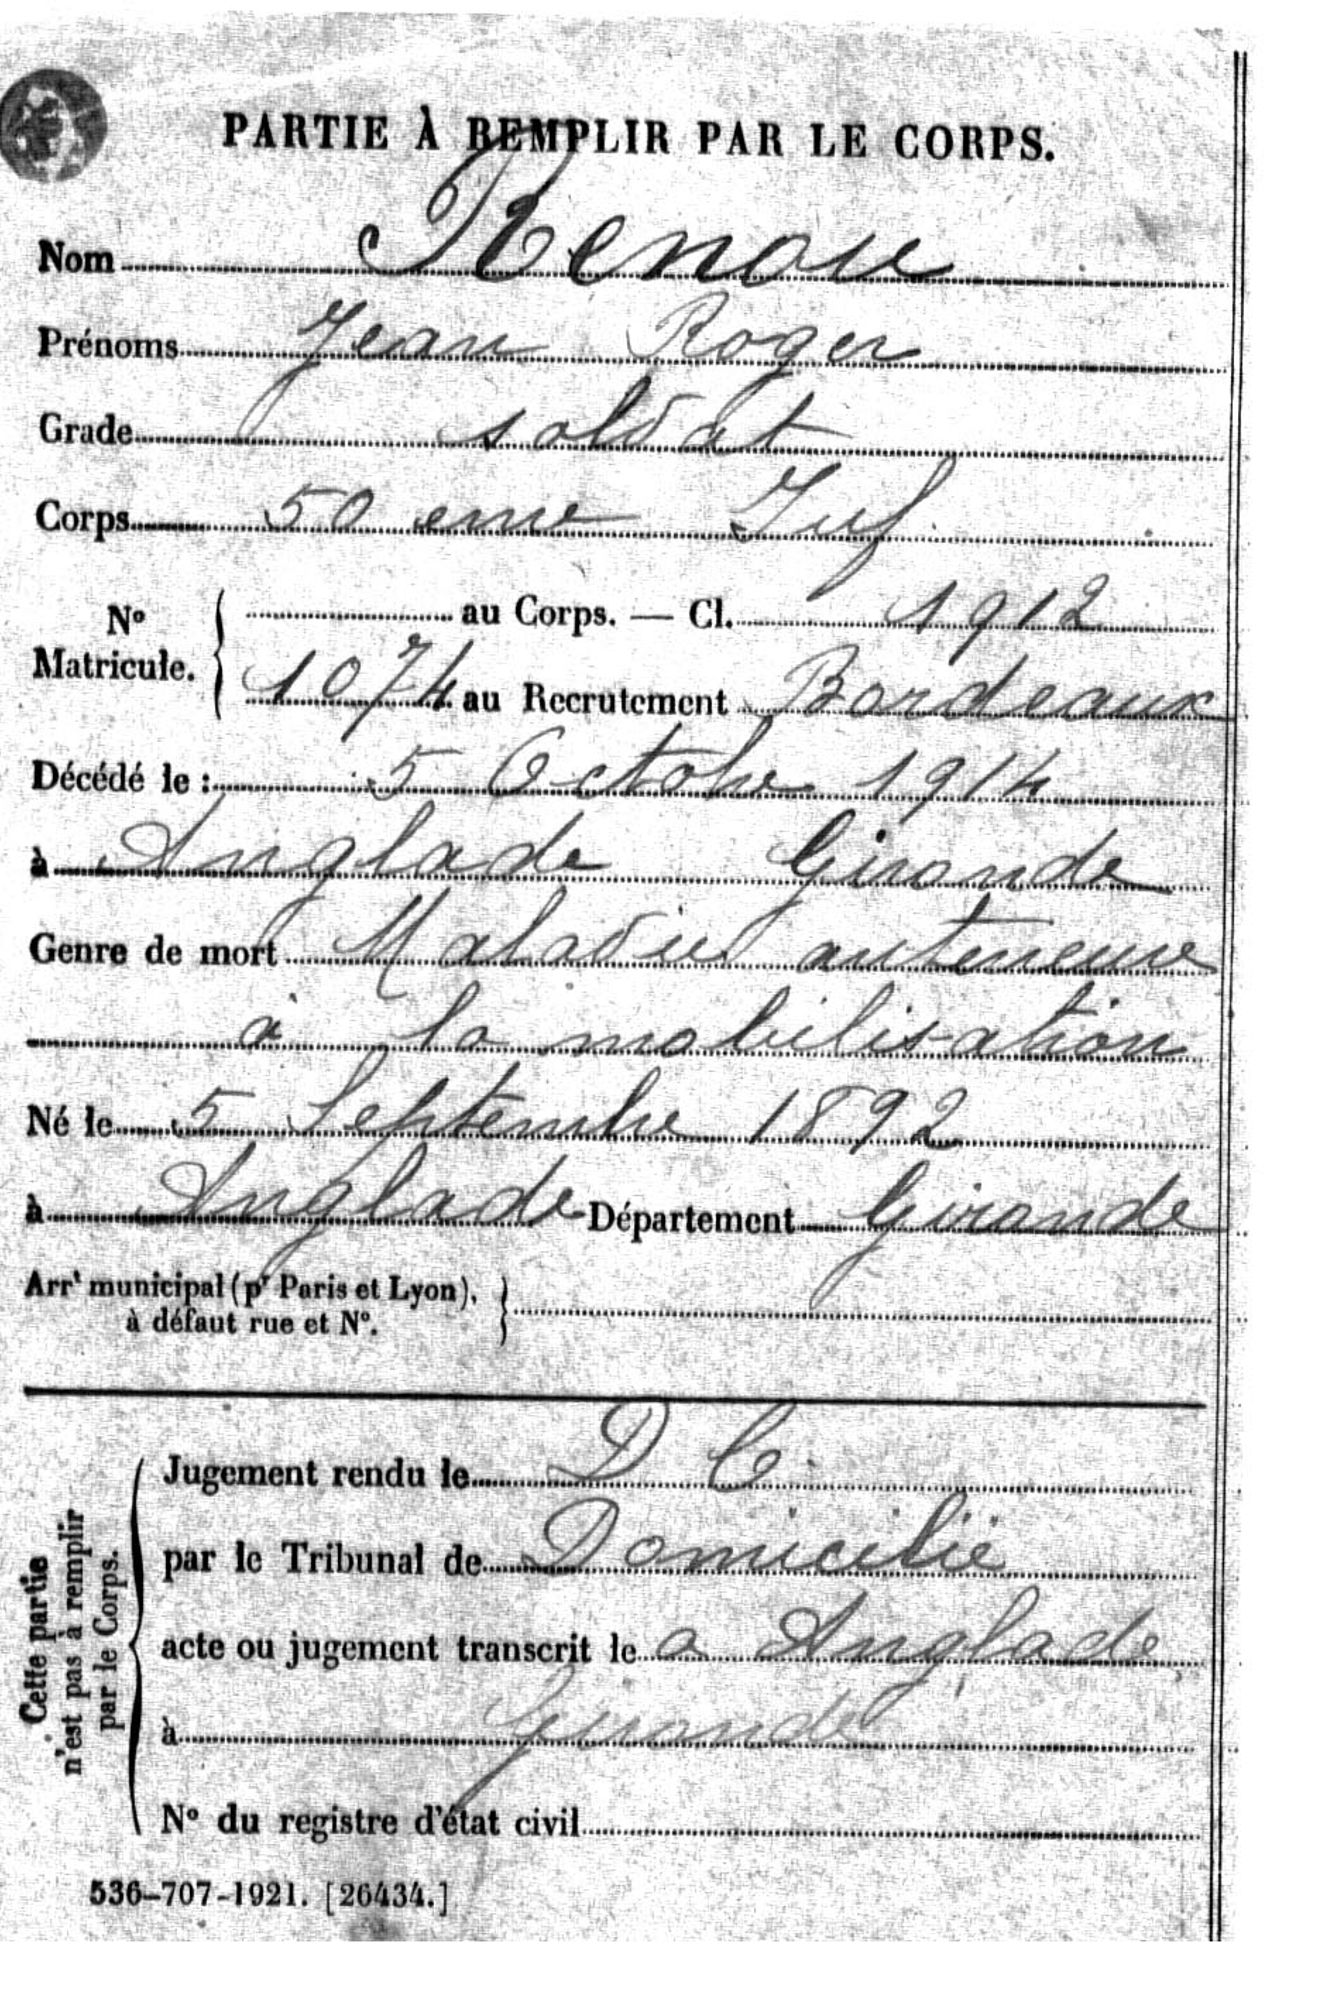 PARTIE À REMPLIR PAR LE CORPS.
Nom Renou
Prénoms Jean Roger
Grade soldat
Corps 50 eme Inf.
Nº Matricule. { au Corps. — Cl. 1912
1074 au Recrutement Bordeaux
Décédé le : 5 Octobre 1914
à Anglade Gironde
Genre de mort Maladie anterieure
à la mobilisation
Né le 5 Septembre 1892
à Anglade Département Gironde
Arrt municipal (pr Paris et Lyon),
à défaut rue et Nº.
Cette partie
n'est pas à remplir
par le Corps.
Jugement rendu le D C
par le Tribunal de Domicilié
acte ou jugement transcrit le a Anglade
à Gironde
Nº du registre d'état civil
536-707-1921. [26434.]